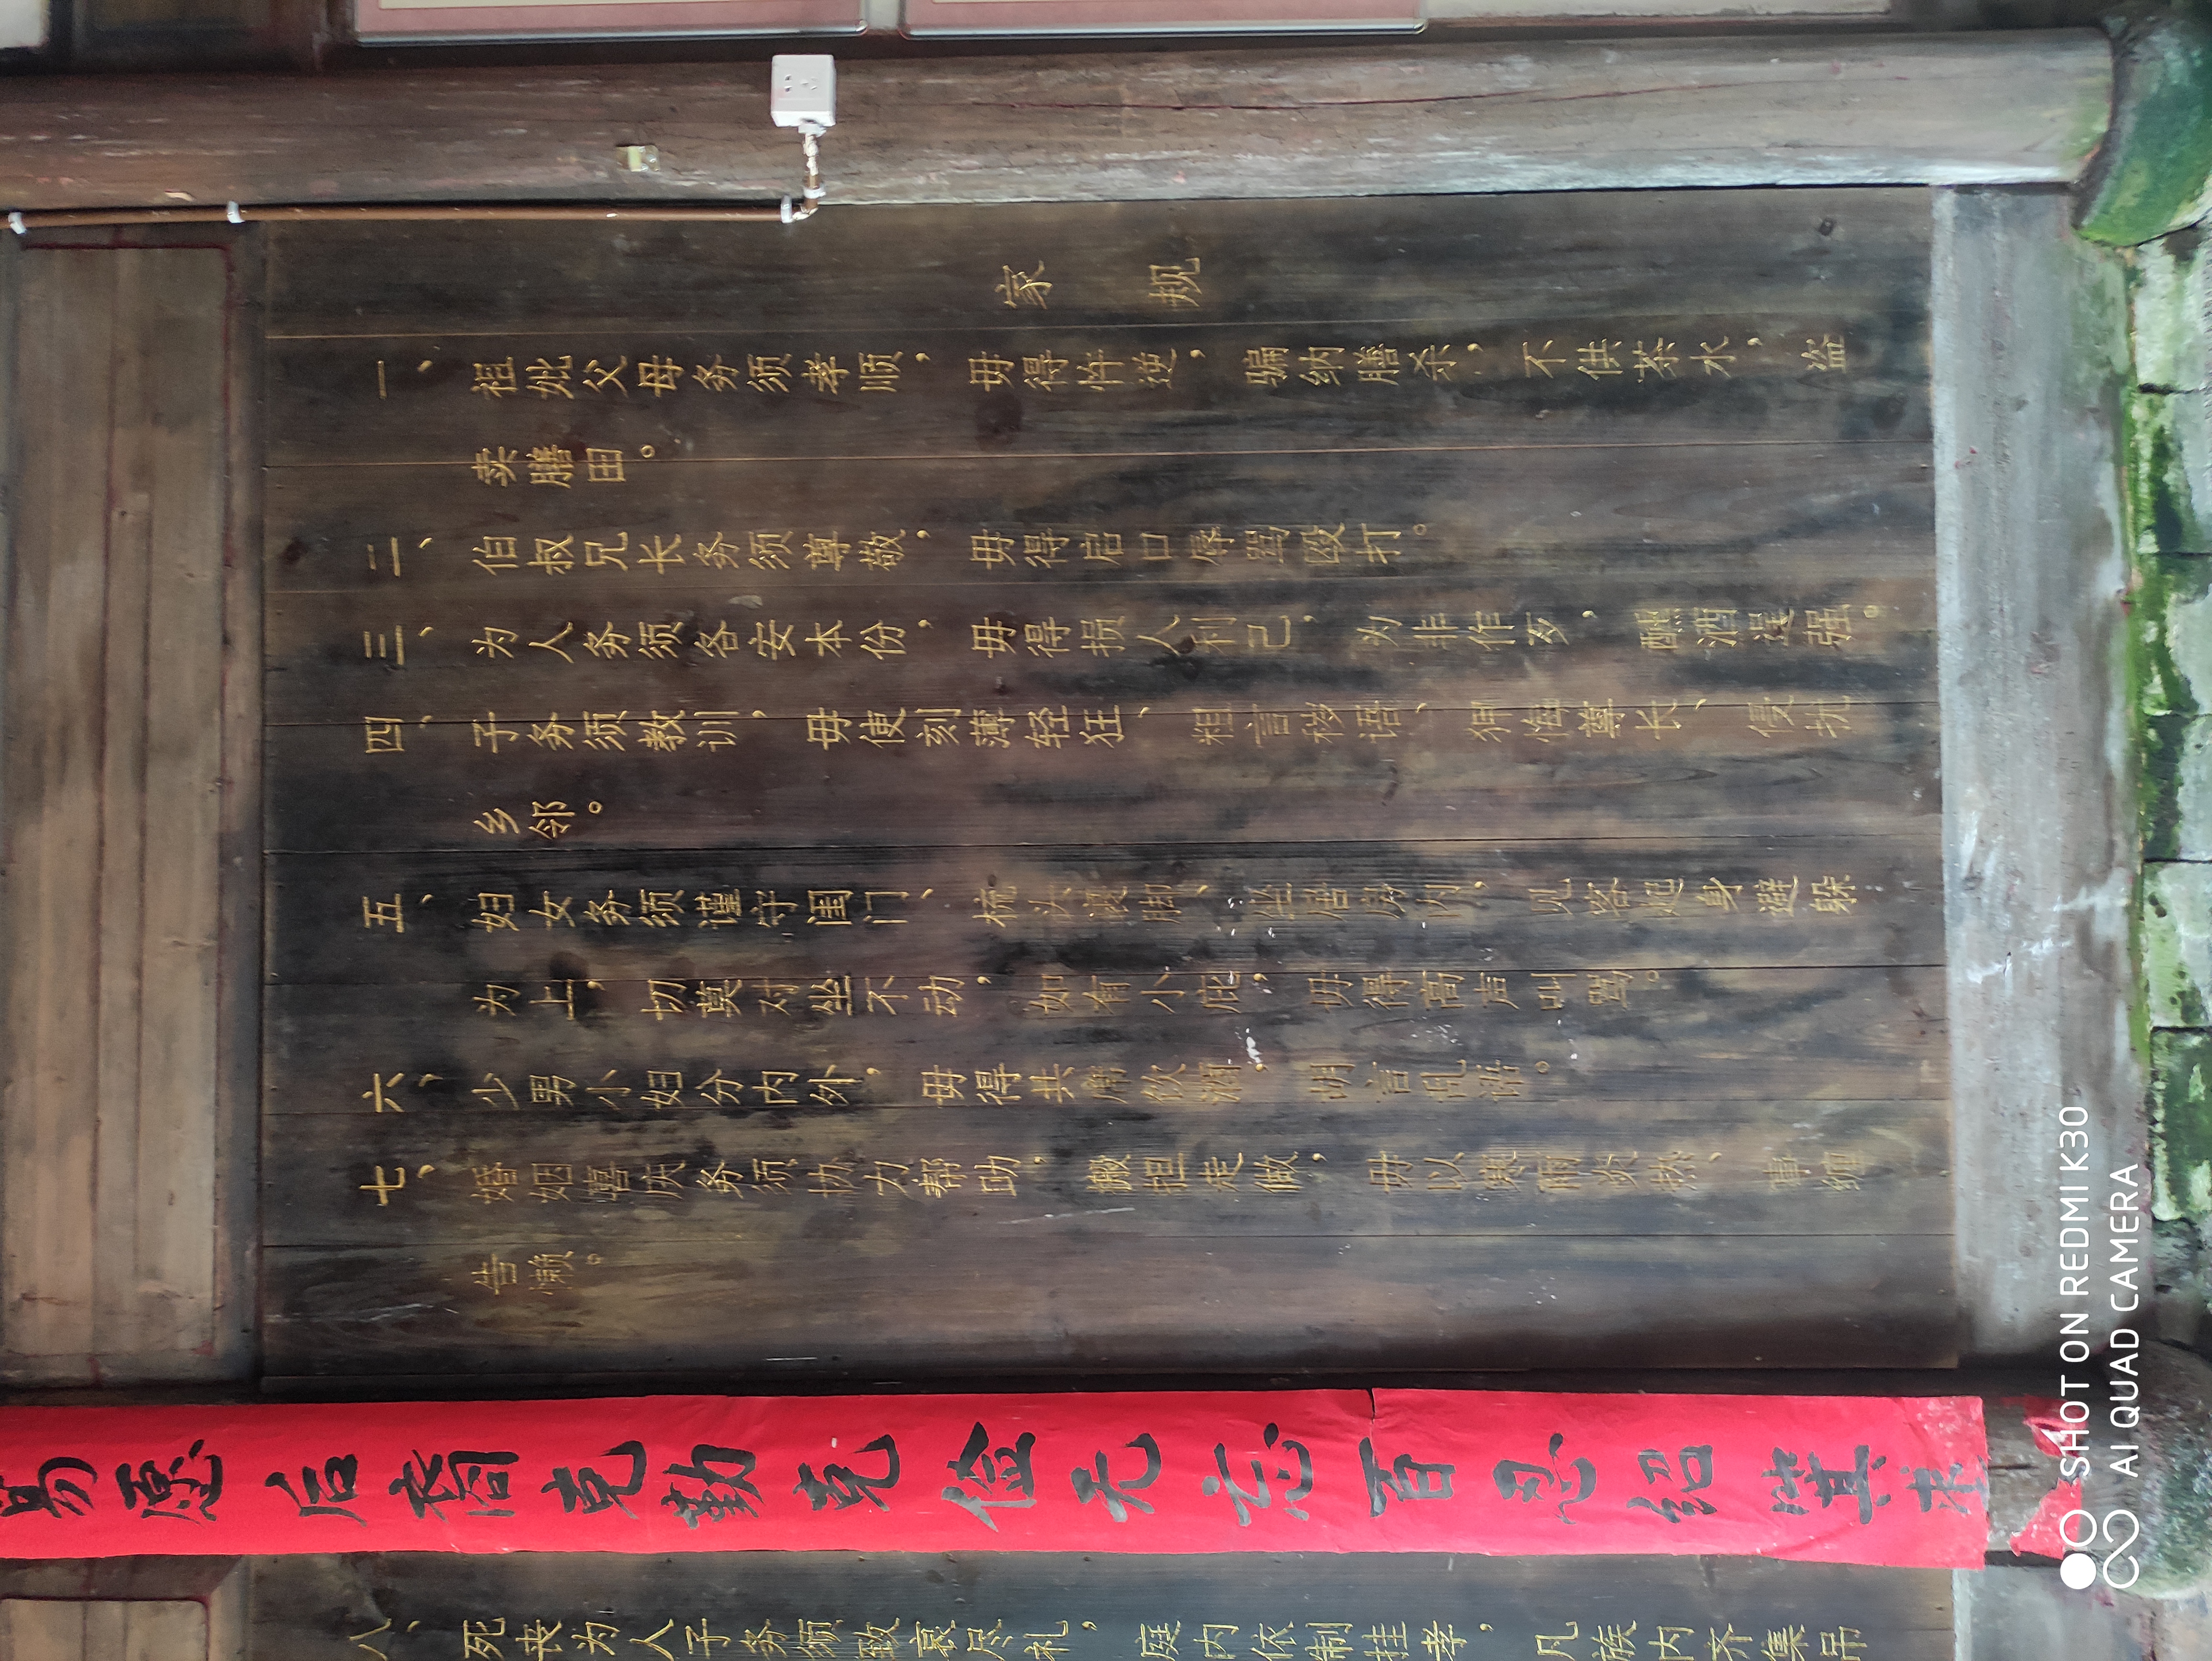 家 规
一、祖妣父母务须孝顺，毋得忤逆，骗纳膳杀，不供茶水，盗
卖膳田。
二、伯叔兄长务须尊敬，毋得启口辱骂殴打。
三、为人务须各安本份，毋得损人利己，为非作歹，酗酒逞强。
四、子务须教训，毋使刻薄轻狂、粗言秽语、狎侮尊长、侵扰
乡邻。
五、妇女务须谨守闺门、梳头裹脚、坐居房内，见客起身避躲
为上，切莫对坐不动，如有小庇，毋得高声叫骂。
六、少男小妇分内外，毋得共席饮酒，言乱语。
七、婚姻嘻庆务须协力帮助，搬担走做，毋以寒炎热、事缠
告懒。
易愿后裔克勤克俭无忘百忍绍
八、死丧为人子务须致哀尽礼，庭内依制挂孝，凡族内齐集吊
SHOT ON REDMI K30
AI QUAD CAMERA